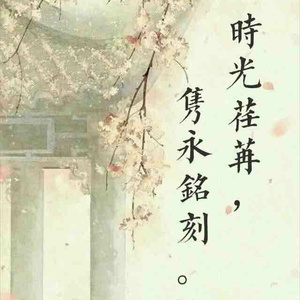 時光荏苒，
隽永銘刻。